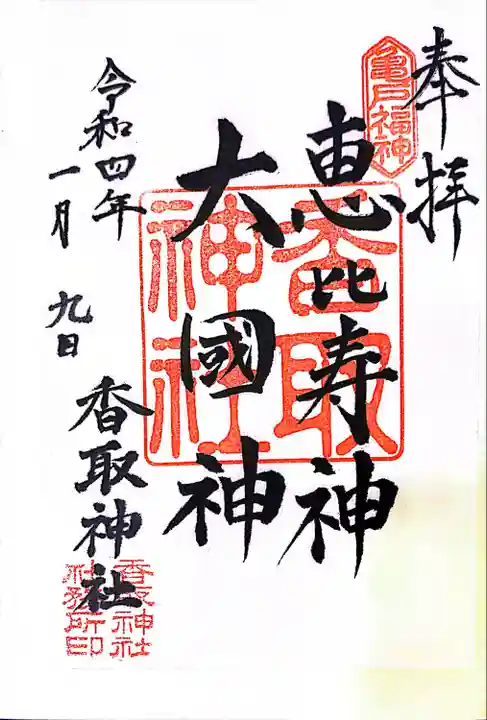 奉拝
亀戸福神
恵比寿神
大國神
香取
神社
令和四年
一月 九日
香取神社
香取神社
社務所印